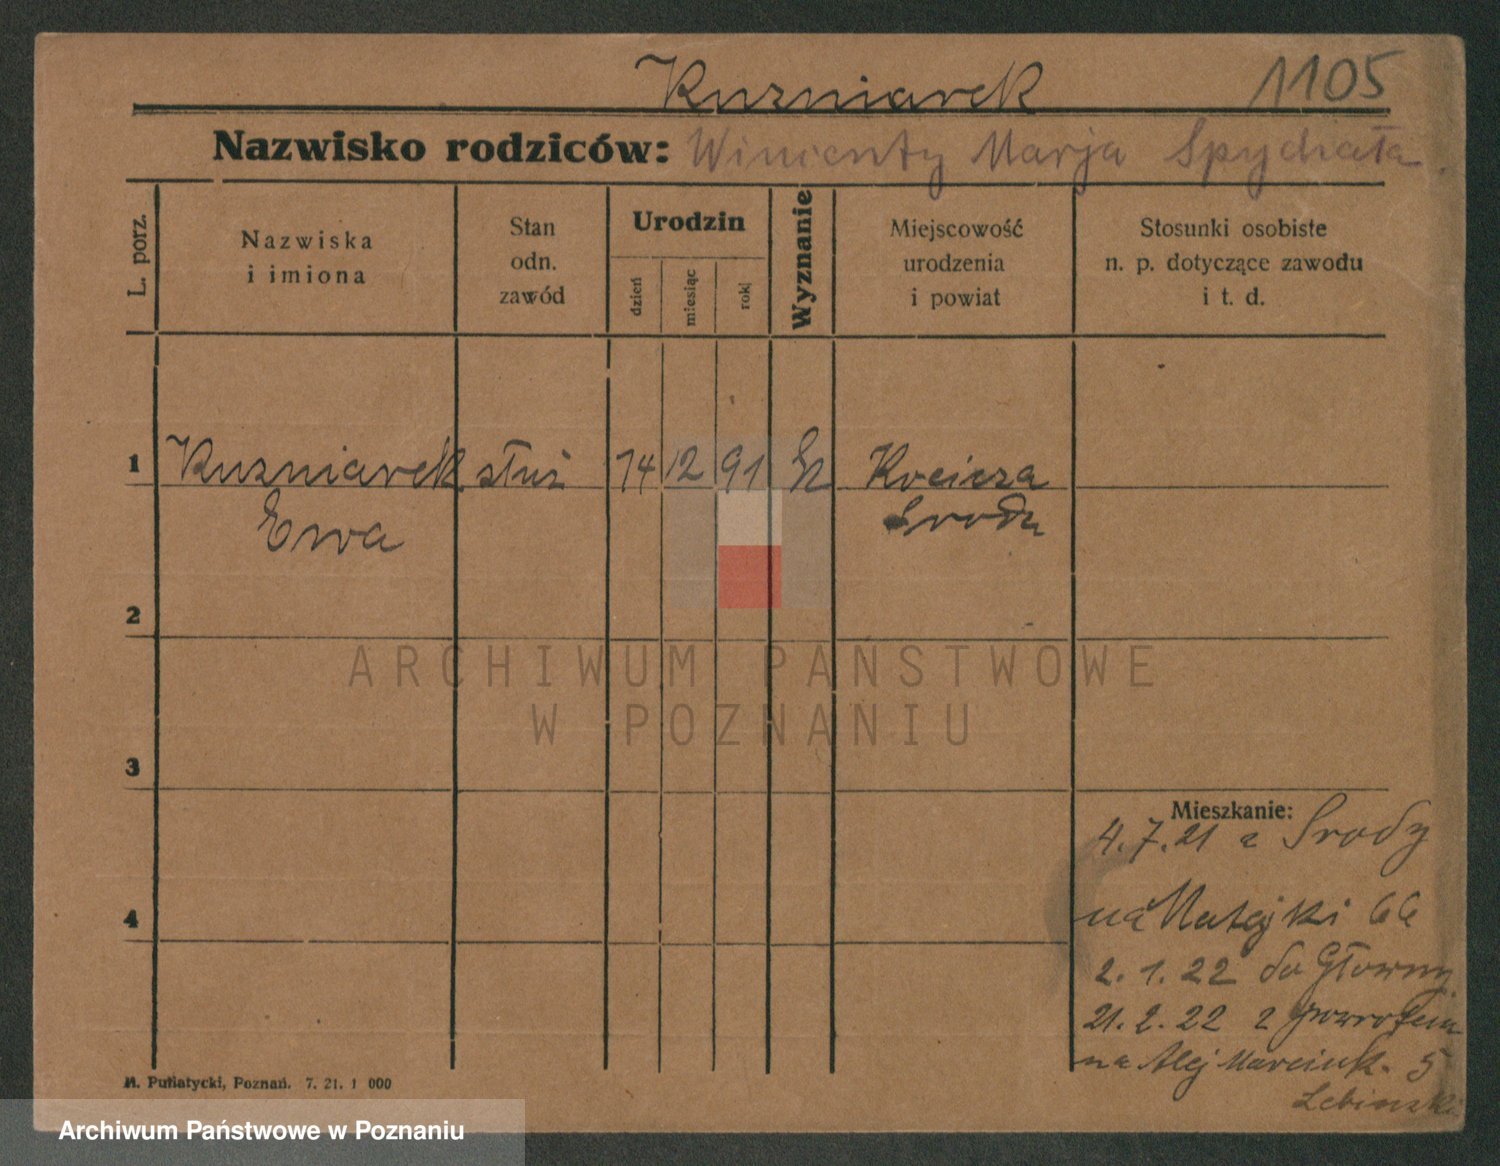 Kuzniarek 1105
Nazwisko rodziców: Wincenty Marja Spychała
L. porz.
Nazwiska
i imiona
Stan
odn.
zawód
Urodzin
dzień
miesiąc
rok
Wyznanie
Miejscowość
urodzenia
i powiat
Stosunki osobiste
n. p. dotyczące zawodu
i t. d.
1 Kuzniarek służ 14 12 91
Ewa Środa
2
ARCHIWUM PAŃSTWOWE
W POZNANIU
3
Mieszkanie:
4.7.21 z Srody
4
na Matejki 66
2.1.22 do Głowny
21.2.22 z powrotem
na Alej Marcink. 5
Lebinski
M. Putiatycki, Poznań. 7. 21. 1 000
Archiwum Państwowe w Poznaniu